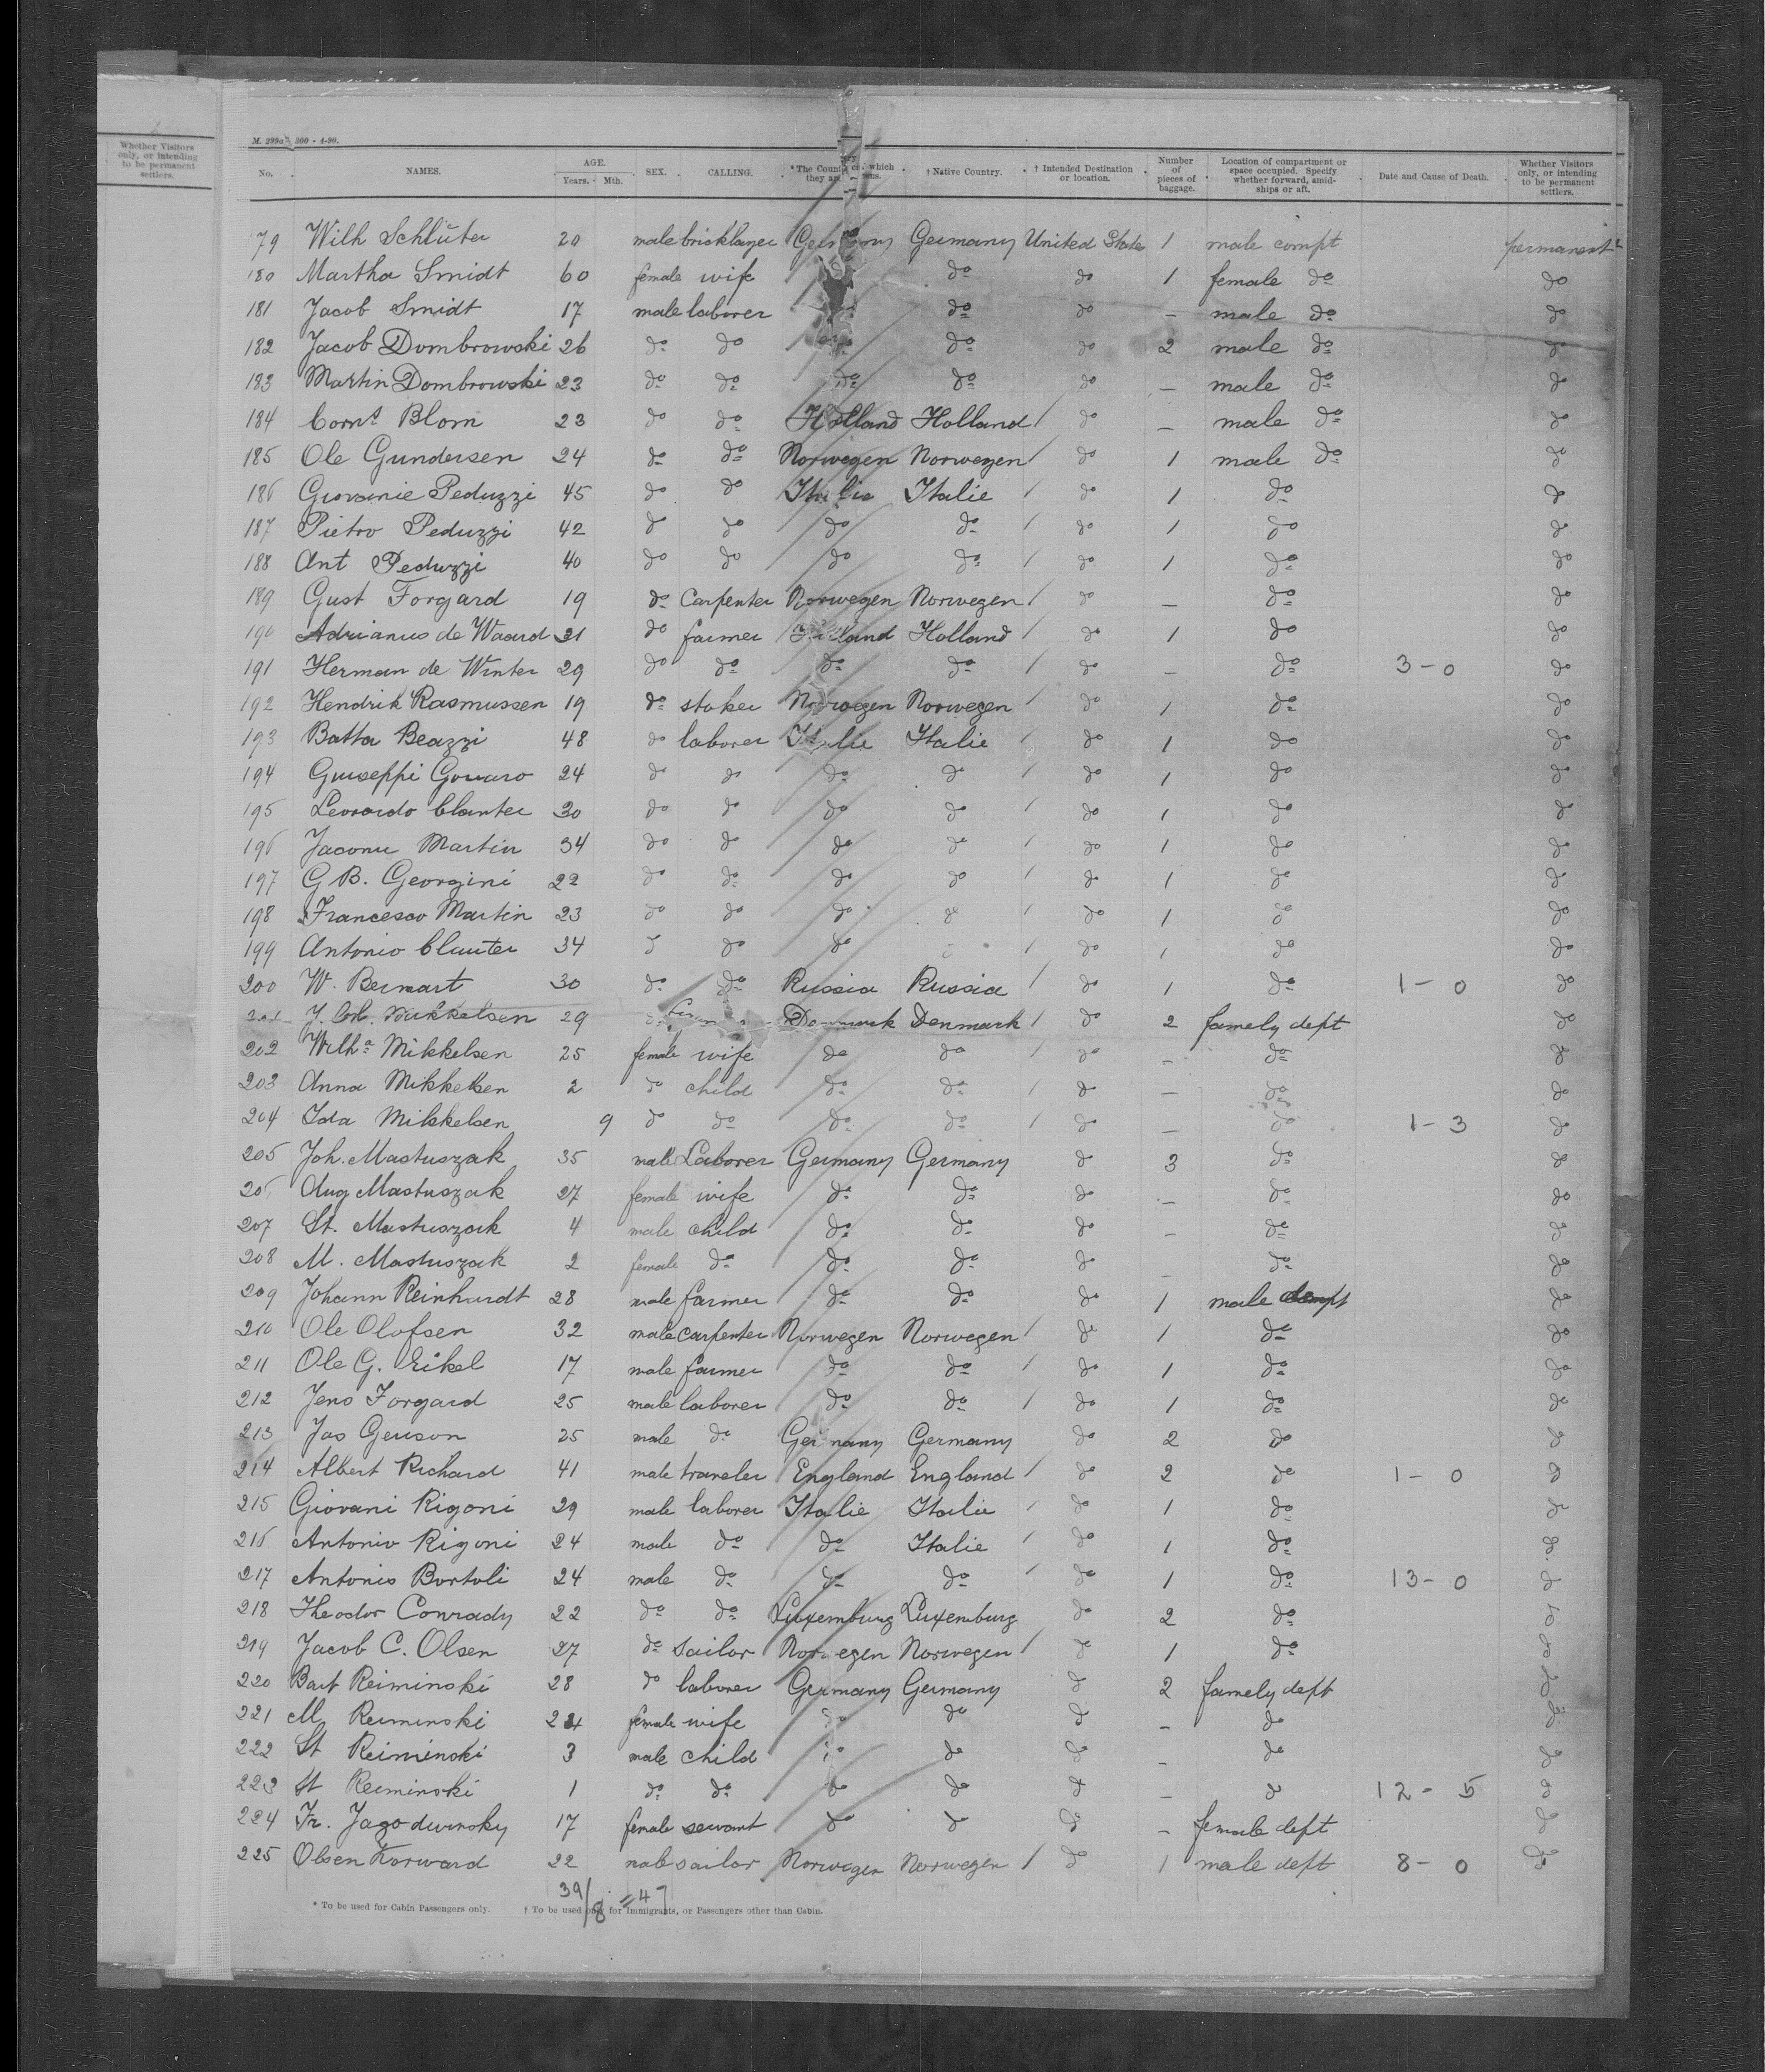 Whether Visitors
only, or intending
to be permanent
settlers.
M. 299a 300 - 4-90.
No. NAMES. AGE. Years. Mth. SEX. CALLING. *The Country of which they are citizens. † Native Country. † Intended Destination or location. Number of pieces of baggage. Location of compartment or space occupied. Specify whether forward, amid-ships or aft. Date and Cause of Death. Whether Visitors only, or intending to be permanent settlers.
79 Wilh Schlüter 20 male bricklayer Germany Germany United States 1 male compt permanent
180 Martha Smidt 60 female wife do do 1 female do do
181 Jacob Smidt 17 male laborer do do — male do do
182 Jacob Dombrowski 26 do do do do do 2 male do do
183 Martin Dombrowski 23 do do do do do — male do do
184 Corns Blom 23 do do Holland Holland / do — male do do
185 Ole Gundersen 24 do do Norwegen Norwegen / do 1 male do do
186 Giovanie Peduzzi 45 do do Italie Italie / do 1 do do
187 Pietro Peduzzi 42 do do do do / do 1 do do
188 Ant Peduzzi 40 do do do do / do 1 do do
189 Gust Forgard 19 do Carpenter Norwegen Norwegen / do — do do
190 Adrianus de Waard 31 do farmer Holland Holland / do 1 do do
191 Herman de Winter 29 do do do do / do — do 3-0 do
192 Hendrik Rasmussen 19 do stoker Norwegen Norwegen / do 1 do do
193 Batta Beazzi 48 do laborer Italie Italie / do 1 do do
194 Guiseppi 24 do do do do / do 1 do do
195 30 do do do do / do 1 do do
196 Martin 34 do do do do / do 1 do do
197 G B. Georgini 22 do do do do / do 1 do do
198 Francesco Martin 23 do do do do / do 1 do do
199 Antonio 34 do do do / do 1 do do
200 W. Bernart 30 do do Russia Russia / do 1 do 1-0 do
201 Mikkelsen 29 do Denmark Denmark / do 2 famely dept do
202 Wilha Mikkelsen 25 female wife do do / do — do do
203 Anna Mikkelsen 2 do child do do / do — do do
204 Ida Mikkelsen 9 do do do do / do — do 1-3 do
205 Joh. Mastuszak 35 male Laborer Germany Germany do 3 do do
206 Aug Mastuszak 27 female wife do do do — do do
207 St. Mastuszak 4 male child do do do — do do
208 M. Mastuszak 2 female do do do do — do do
209 Johann Reinhardt 28 male farmer do do do 1 male compt do
210 Ole Olofsen 32 male carpenter Norwegen Norwegen / do 1 do do
211 Ole G. Eikel 17 male farmer do do / do 1 do do
212 Jens Forgard 25 male laborer do do / do 1 do do
213 Jas Geuson 25 male do Germany Germany do 2 do do
214 Albert Richard 41 male traveler England England / do 2 do 1-0 do
215 Giovani Rigoni 29 male laborer Italie Italie / do 1 do do
216 Antonio Rigoni 24 male do do Italie / do 1 do do
217 Antonio Bortoli 24 male do do do / do 1 do 13-0 do
218 Theodor Conrady 22 do do Luxemburg Luxemburg do 2 do do
219 Jacob C. Olsen 27 do Sailor Norwegen Norwegen / do 1 do do
220 Bart Reiminski 28 do laborer Germany Germany do 2 famely dept do
221 M. Reiminski 24 female wife do do do — do do
222 St Reiminski 3 male child do do do — do do
223 St Reiminski 1 do do do do do — do 12-5 do
224 Fr. Jagodwinsky 17 female servant do do do — female dept do
225 Olsen Korward 22 male sailor Norwegen Norwegen / do 1 male dept 8-0 do
39/8 = 47
* To be used for Cabin Passengers only. † To be used only for Immigrants, or Passengers other than Cabin.